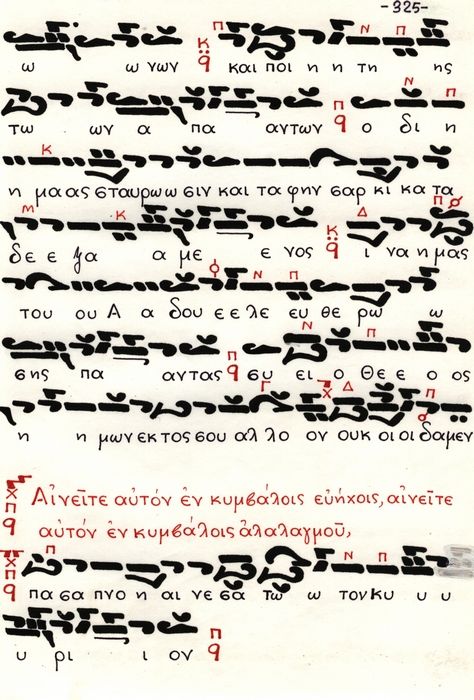 -325-
ω ω νων και ποι η η τη ης
τω ων α πα αντων ο δι η
η μα ας σταυρω ω σιν και τα φην σαρ κι κα τα
δε ε ξα α με ε νος ι να η μας
του ου Α α δου ε ε λε ευ θε ρω ω
σης πα αντας συ ει ο Θε ε ο ος
η η μων εκ τος σου αλ λο ον ουκ οι οι δα μεν
Αἰνεῖτε αὐτόν ἐν κυμβάλοις εὐήχοις, αἰνεῖτε
αὐτόν ἐν κυμβάλοις ἀλαλαγμοῦ,
πα σα πνο η αι νε σα τω ω τον κυ υ υ
υ ρι ι ον